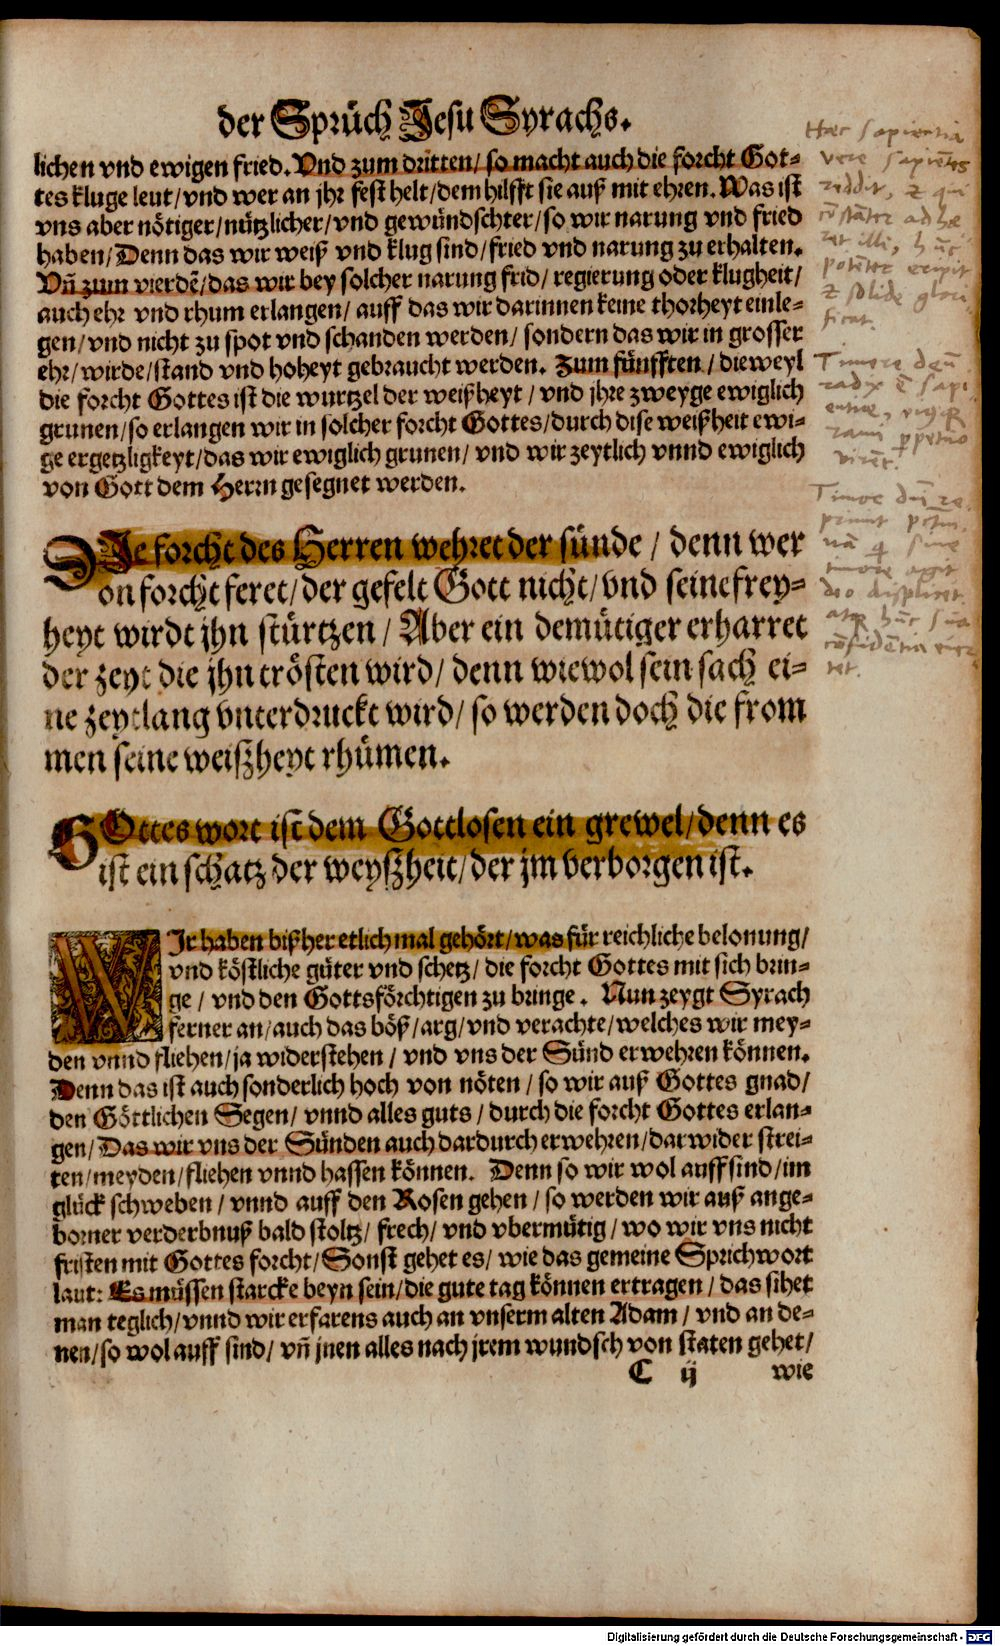 der Sprüch Jesu Syrachs.
lichen vnd ewigen fried. Vnd zum dritten/ so macht auch die forcht Got-
tes kluge leut/ vnd wer an jhr fest helt/ dem hilfft sie auß mit ehren. Was ist
vns aber nötiger/ nützlicher/ vnd gewündschter/ so wir narung vnd fried
haben/ Denn das wir weiß vnd klug sind/ fried vnd narung zu erhalten.
Vñ zum vierdẽ/ das wir bey solcher narung frid/ regierung oder klugheit/
auch ehr vnd rhum erlangen/ auff das wir darinnen keine thorheyt einle-
gen/ vnd nicht zu spot vnd schanden werden/ sondern das wir in grosser
ehr/ wirde/ stand vnd hoheyt gebraucht werden. Zum fünfften/ die weyl
die forcht Gottes ist die wurtzel der weißheyt/ vnd jhre zweyge ewiglich
grunen/ so erlangen wir in solcher forcht Gottes/ durch dise weißheit ewi-
ge ergetzligkeyt/ das wir ewiglich grunen/ vnd wir zeytlich vnnd ewiglich
von Gott dem Herrn gesegnet werden.
DIe forcht des Herren wehret der sünde/ denn wer
on forcht feret/ der gefelt Gott nicht/ vnd seine frey-
heyt wirdt jhn stürtzen/ Aber ein demütiger erharret
der zeyt die jhn trösten wird/ denn wiewol sein sach ei-
ne zeytlang vnterdruckt wird/ so werden doch die from
men seine weißheyt rhümen.
GOttes wort ist dem Gottlosen ein grewel/ denn es
ist ein schatz der weyßheit/ der jm verborgen ist.
WIr haben bißher etlich mal gehört/ was für reichliche belonung/
vnd köstliche güter vnd schetz/ die forcht Gottes mit sich brin-
ge/ vnd den Gottsförchtigen zu bringe. Nun zeygt Syrach
ferner an/ auch das böß/ arg/ vnd verachte/ welches wir mey-
den vnnd fliehen/ ja widerstehen/ vnd vns der Sünd erwehren können.
Denn das ist auch sonderlich hoch von nöten/ so wir auß Gottes gnad/
den Göttlichen Segen/ vnnd alles guts/ durch die forcht Gottes erlan-
gen/ Das wir vns der Sünden auch dardurch erwehren/ darwider strei-
ten/ meyden/ fliehen vnnd hassen können. Denn so wir wol auff sind/ im
glück schweben/ vnnd auff den Rosen gehen/ so werden wir auß ange-
borner verderbnuß bald stoltz/ frech/ vnd vbermütig/ wo wir vns nicht
fristen mit Gottes forcht/ Sonst gehet es/ wie das gemeine Sprichwort
laut: Es müssen starcke beyn sein/ die gute tag können ertragen/ das sihet
man teglich/ vnnd wir erfarens auch an vnserm alten Adam/ vnd an de-
nen/ so wol auff sind/ vñ jnen alles nach jrem wundsch von staten gehet/
C ij wie
Haec sapientia
vere sapiẽtes
reddit, & qui
cõstãter adhae
ret illi, hũc
potẽter eripit
& solide glori
ficat.
Timore
radix ẽ sapi
entiae,
rami ꝑpetuo
virẽt.
Timor
sine
timore agit
deo displicet,
hũc suã
cõfidẽtia
tet.
Digitalisierung gefördert durch die Deutsche Forschungsgemeinschaft - DFG